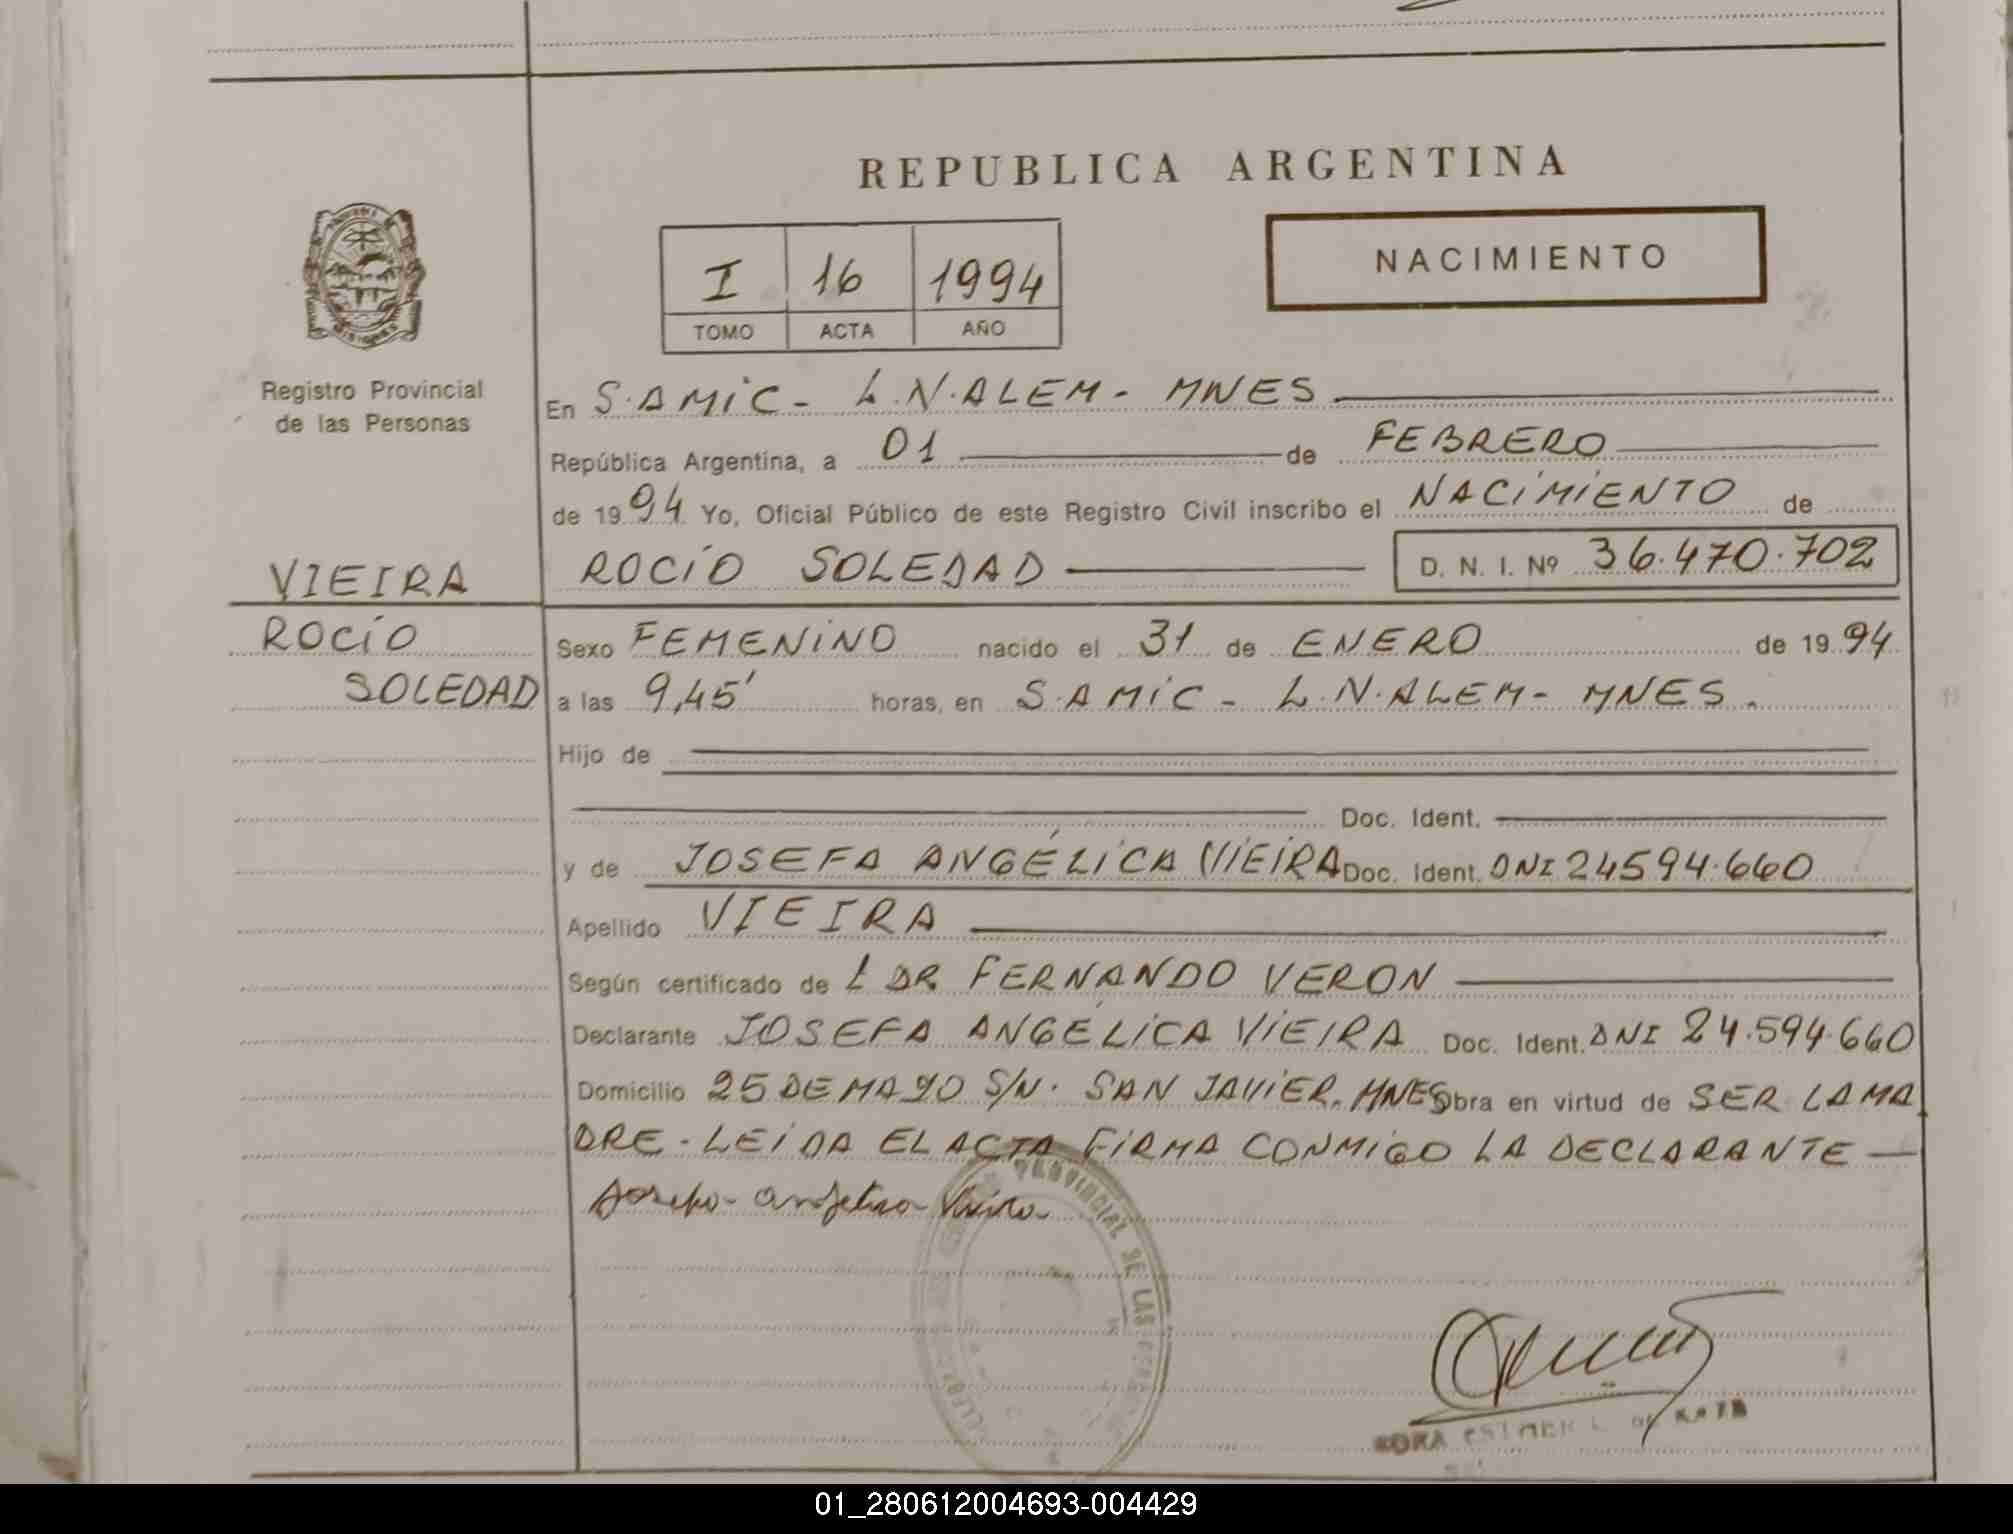 REPUBLICA ARGENTINA
NACIMIENTO
I 16 1994
TOMO ACTA AÑO
MISIONES
Registro Provincial
de las Personas
En S.AMIC- L.N.ALEM- MNES
República Argentina, a 01 de FEBRERO
de 1994 Yo, Oficial Público de este Registro Civil inscribo el NACIMIENTO de
VIEIRA ROCÍO SOLEDAD D. N. I. Nº 36.470.702
ROCÍO Sexo FEMENINO nacido el 31 de ENERO de 1994
SOLEDAD a las 9,45' horas, en S.AMIC- L.N.ALEM- MNES.
Hijo de
Doc. Ident.
y de JOSEFA ANGÉLICA VIEIRA Doc. Ident. DNI 24594.660
Apellido VIEIRA
Según certificado de L DR FERNANDO VERON
Declarante JOSEFA ANGÉLICA VIEIRA Doc. Ident. DNI 24.594.660
Domicilio 25 DE MAYO S/N. SAN JAVIER. MNES Obra en virtud de SER LA MA
DRE-LEIDA EL ACTA FIRMA CONMIGO LA DECLARANTE
Josefa Angelica Vieira
PROVINCIAL DE LAS
01_280612004693-004429